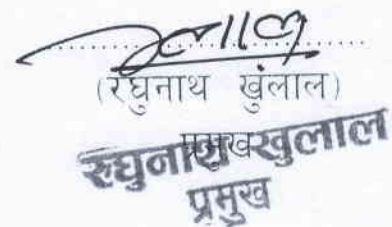 (रघुनाथ खुंलाल)
प्रमुख
रुघुनाथ खुलाल
प्रमुख